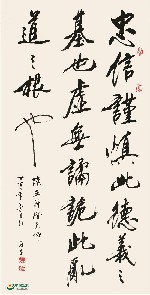 忠信謹慎此德義之
基也虛無譎詭此亂
道之根也